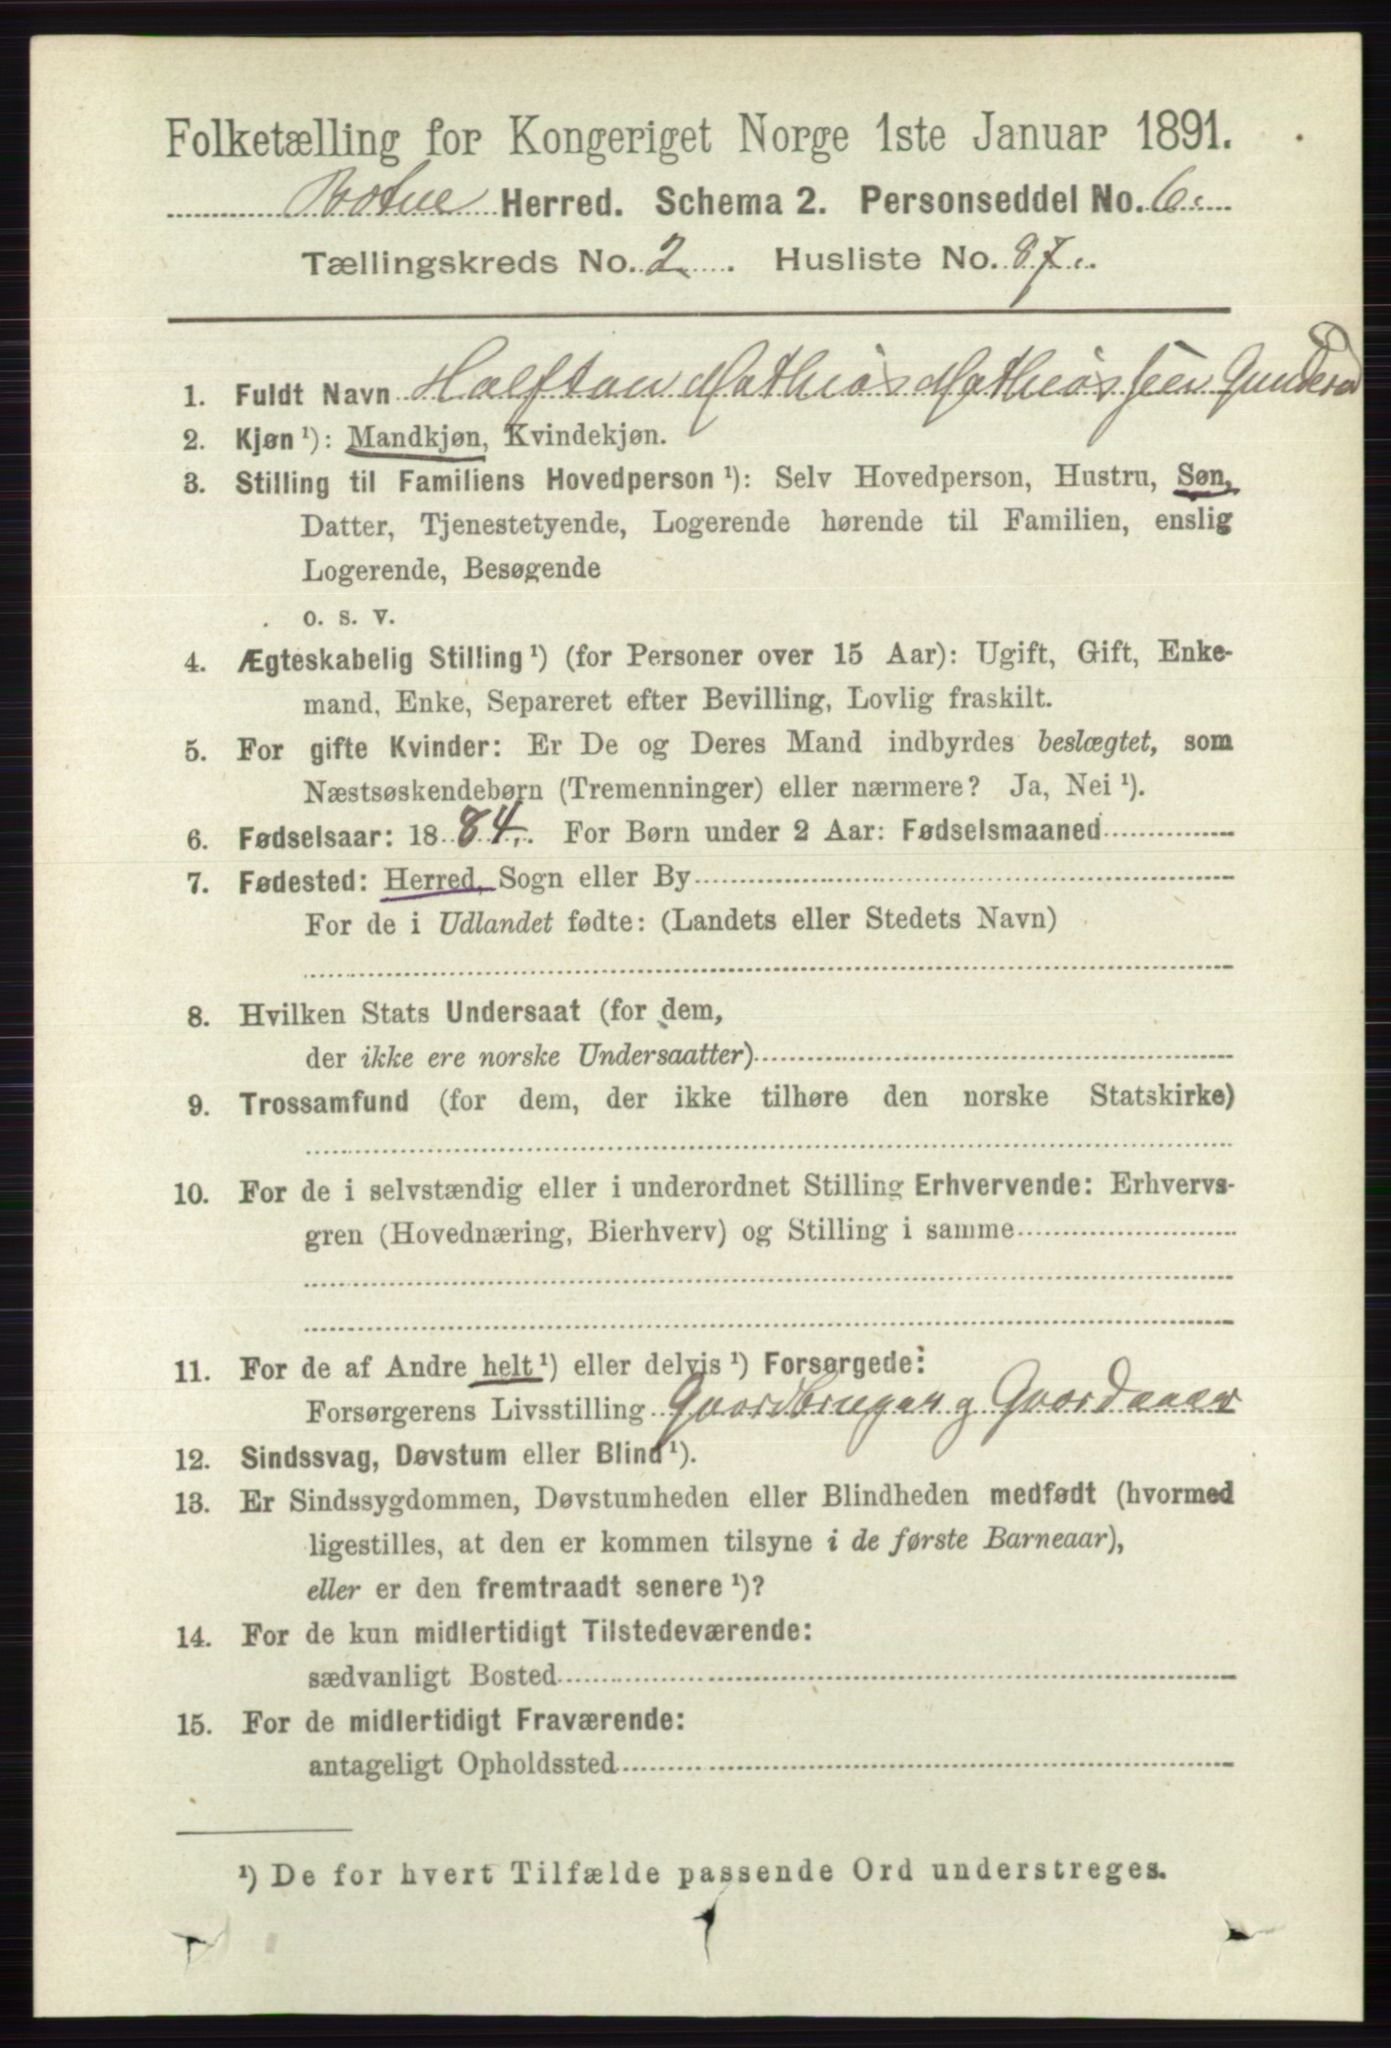 Folketælling for Kongeriget Norge 1ste Januar 1891.
Botne Herred. Schema 2. Personseddel No. 6.
Tællingskreds No. 2. Husliste No. 87.
1. Fuldt Navn Halftan Mathias Mathiassen
2. Kjøn ¹): Mandkjøn, Kvindekjøn.
3. Stilling til Familiens Hovedperson ¹): Selv Hovedperson, Hustru, Søn,
Datter, Tjenestetyende, Logerende hørende til Familien, enslig
Logerende, Besøgende
o. s. v.
4. Ægteskabelig Stilling ¹) (for Personer over 15 Aar): Ugift, Gift, Enke-
mand, Enke, Separeret efter Bevilling, Lovlig fraskilt.
5. For gifte Kvinder: Er De og Deres Mand indbyrdes beslægtet, som
Næstsøskendebørn (Tremenninger) eller nærmere? Ja, Nei ¹).
6. Fødselsaar: 1884. For Børn under 2 Aar: Fødselsmaaned
7. Fødested: Herred, Sogn eller By
For de i Udlandet fødte: (Landets eller Stedets Navn)
8. Hvilken Stats Undersaat (for dem,
der ikke ere norske Undersaatter)
9. Trossamfund (for dem, der ikke tilhøre den norske Statskirke)
10. For de i selvstændig eller i underordnet Stilling Erhvervende: Erhvervs-
gren (Hovednæring, Bierhverv) og Stilling i samme
11. For de af Andre helt ¹) eller delvis ¹) Forsørgede:
Forsørgerens Livsstilling
12. Sindssvag, Døvstum eller Blind ¹).
13. Er Sindssygdommen, Døvstumheden eller Blindheden medfødt (hvormed
ligestilles, at den er kommen tilsyne i de første Barneaar),
eller er den fremtraadt senere ¹)?
14. For de kun midlertidigt Tilstedeværende:
sædvanligt Bosted
15. For de midlertidigt Fraværende:
antageligt Opholdssted
¹) De for hvert Tilfælde passende Ord understreges.